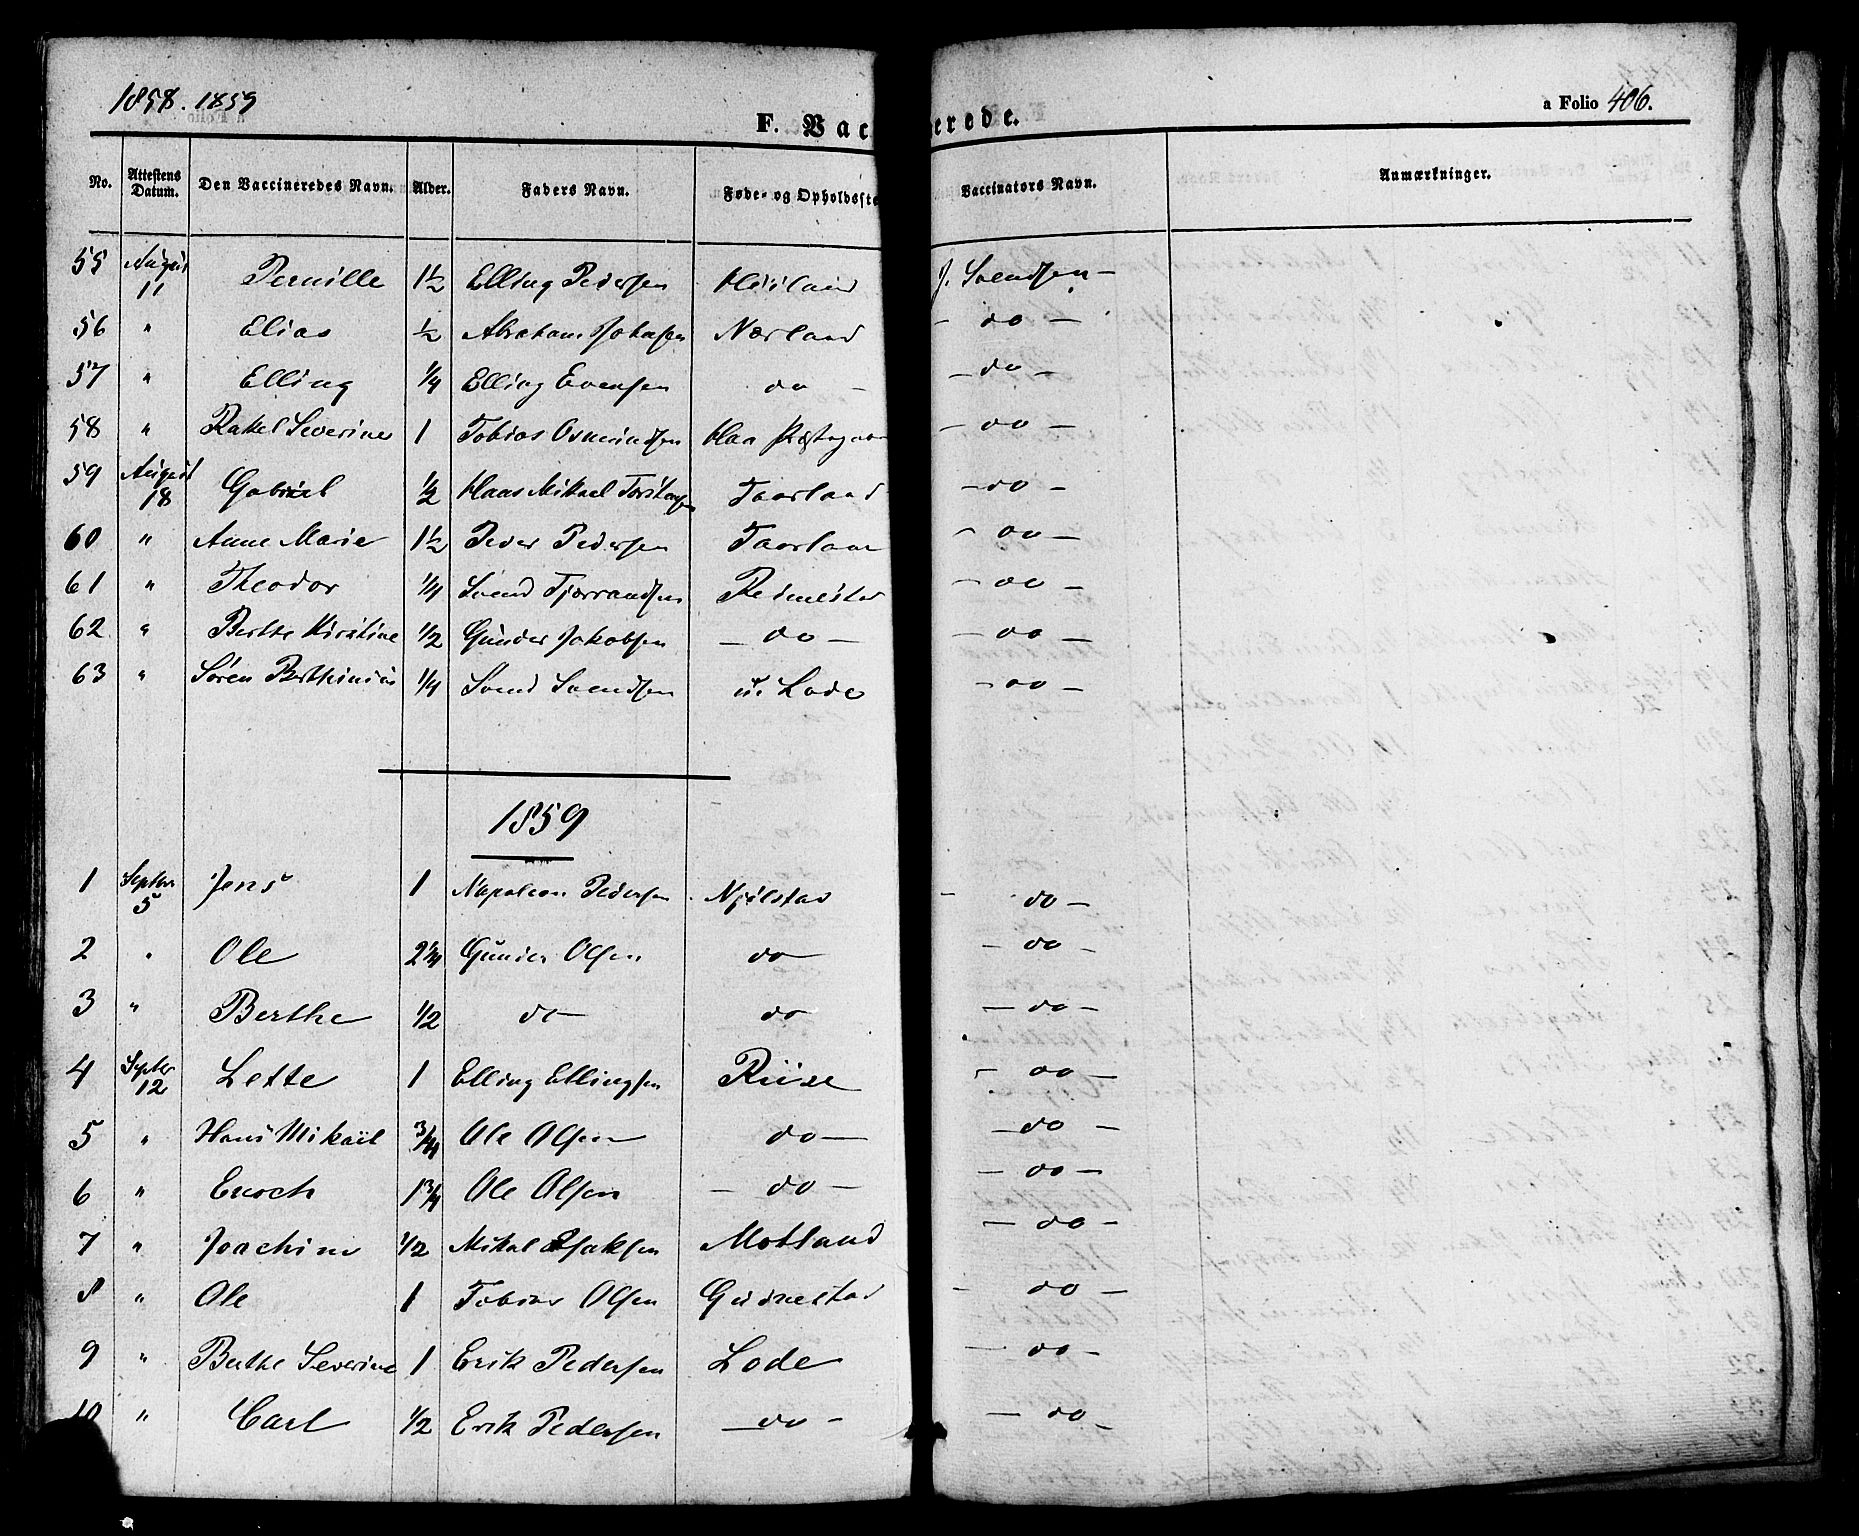 1858. 1859
a Folio 406.
F. Vac erede.
No. Attestens Datum. Den Vaccineredes Navn. Alder. Faders Navn. Føde- og Opholdsste Vaccinators Navn. Anmærkninger.
55 August 11 Pernille 1½ Elling Pedersen J. Svendsen -
56 " Elias ½ Abraham Johnsen Nærland - do -
57 " Elling 1/4 Elling Evensen do - - do -
58 " Rakel Severine 1 Tobias Osmundsen Haa - do -
59 August 18 Gabriel ½ Haas Mikael Taarland - do -
60 " Anne Marie 1½ Peder Pedersen Taarlan - do -
61 " Theodor 1/4 Svend Tjærrandsen - do -
62 " Berthe Kirstine 1/2 Gunder Jakobsen - do - - do -
63 " Sören Berthinius 1/4 Svend Svendsen Lode - do -
1859
1 Septbr 5 Jens 1 Napoleon Pedersen Njölstad - do -
2 " Ole 2 1/4 Gunder Olsen do - do -
3 " Berthe 1/2 do do - do -
4 Septbr 12 Lette 1 Elling Ellingsen Riise - do -
5 " Hans Mikael 3/4 Ole Olsen do - - do -
6 " Enoch 1 3/4 Ole Olsen - do - - do -
7 " Joachim 1/2 Mikal Isaksen Motland - do -
8 " Ole 1 Tobias Olsen Gudmestad - do -
9 " Berthe Severine 1 Erik Pedersen Lode - do -
10 " Carl 1/2 Erik Pedersen - do - - do -